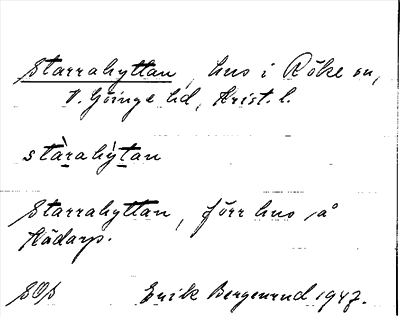 Starrahyttan, hus i Röke sn,
V. Göinge hd, Krist. l.
stàrahýtan
Starrahyttan, förr hus på
Hädarp.
SOS Erik Bergenrud 1947.